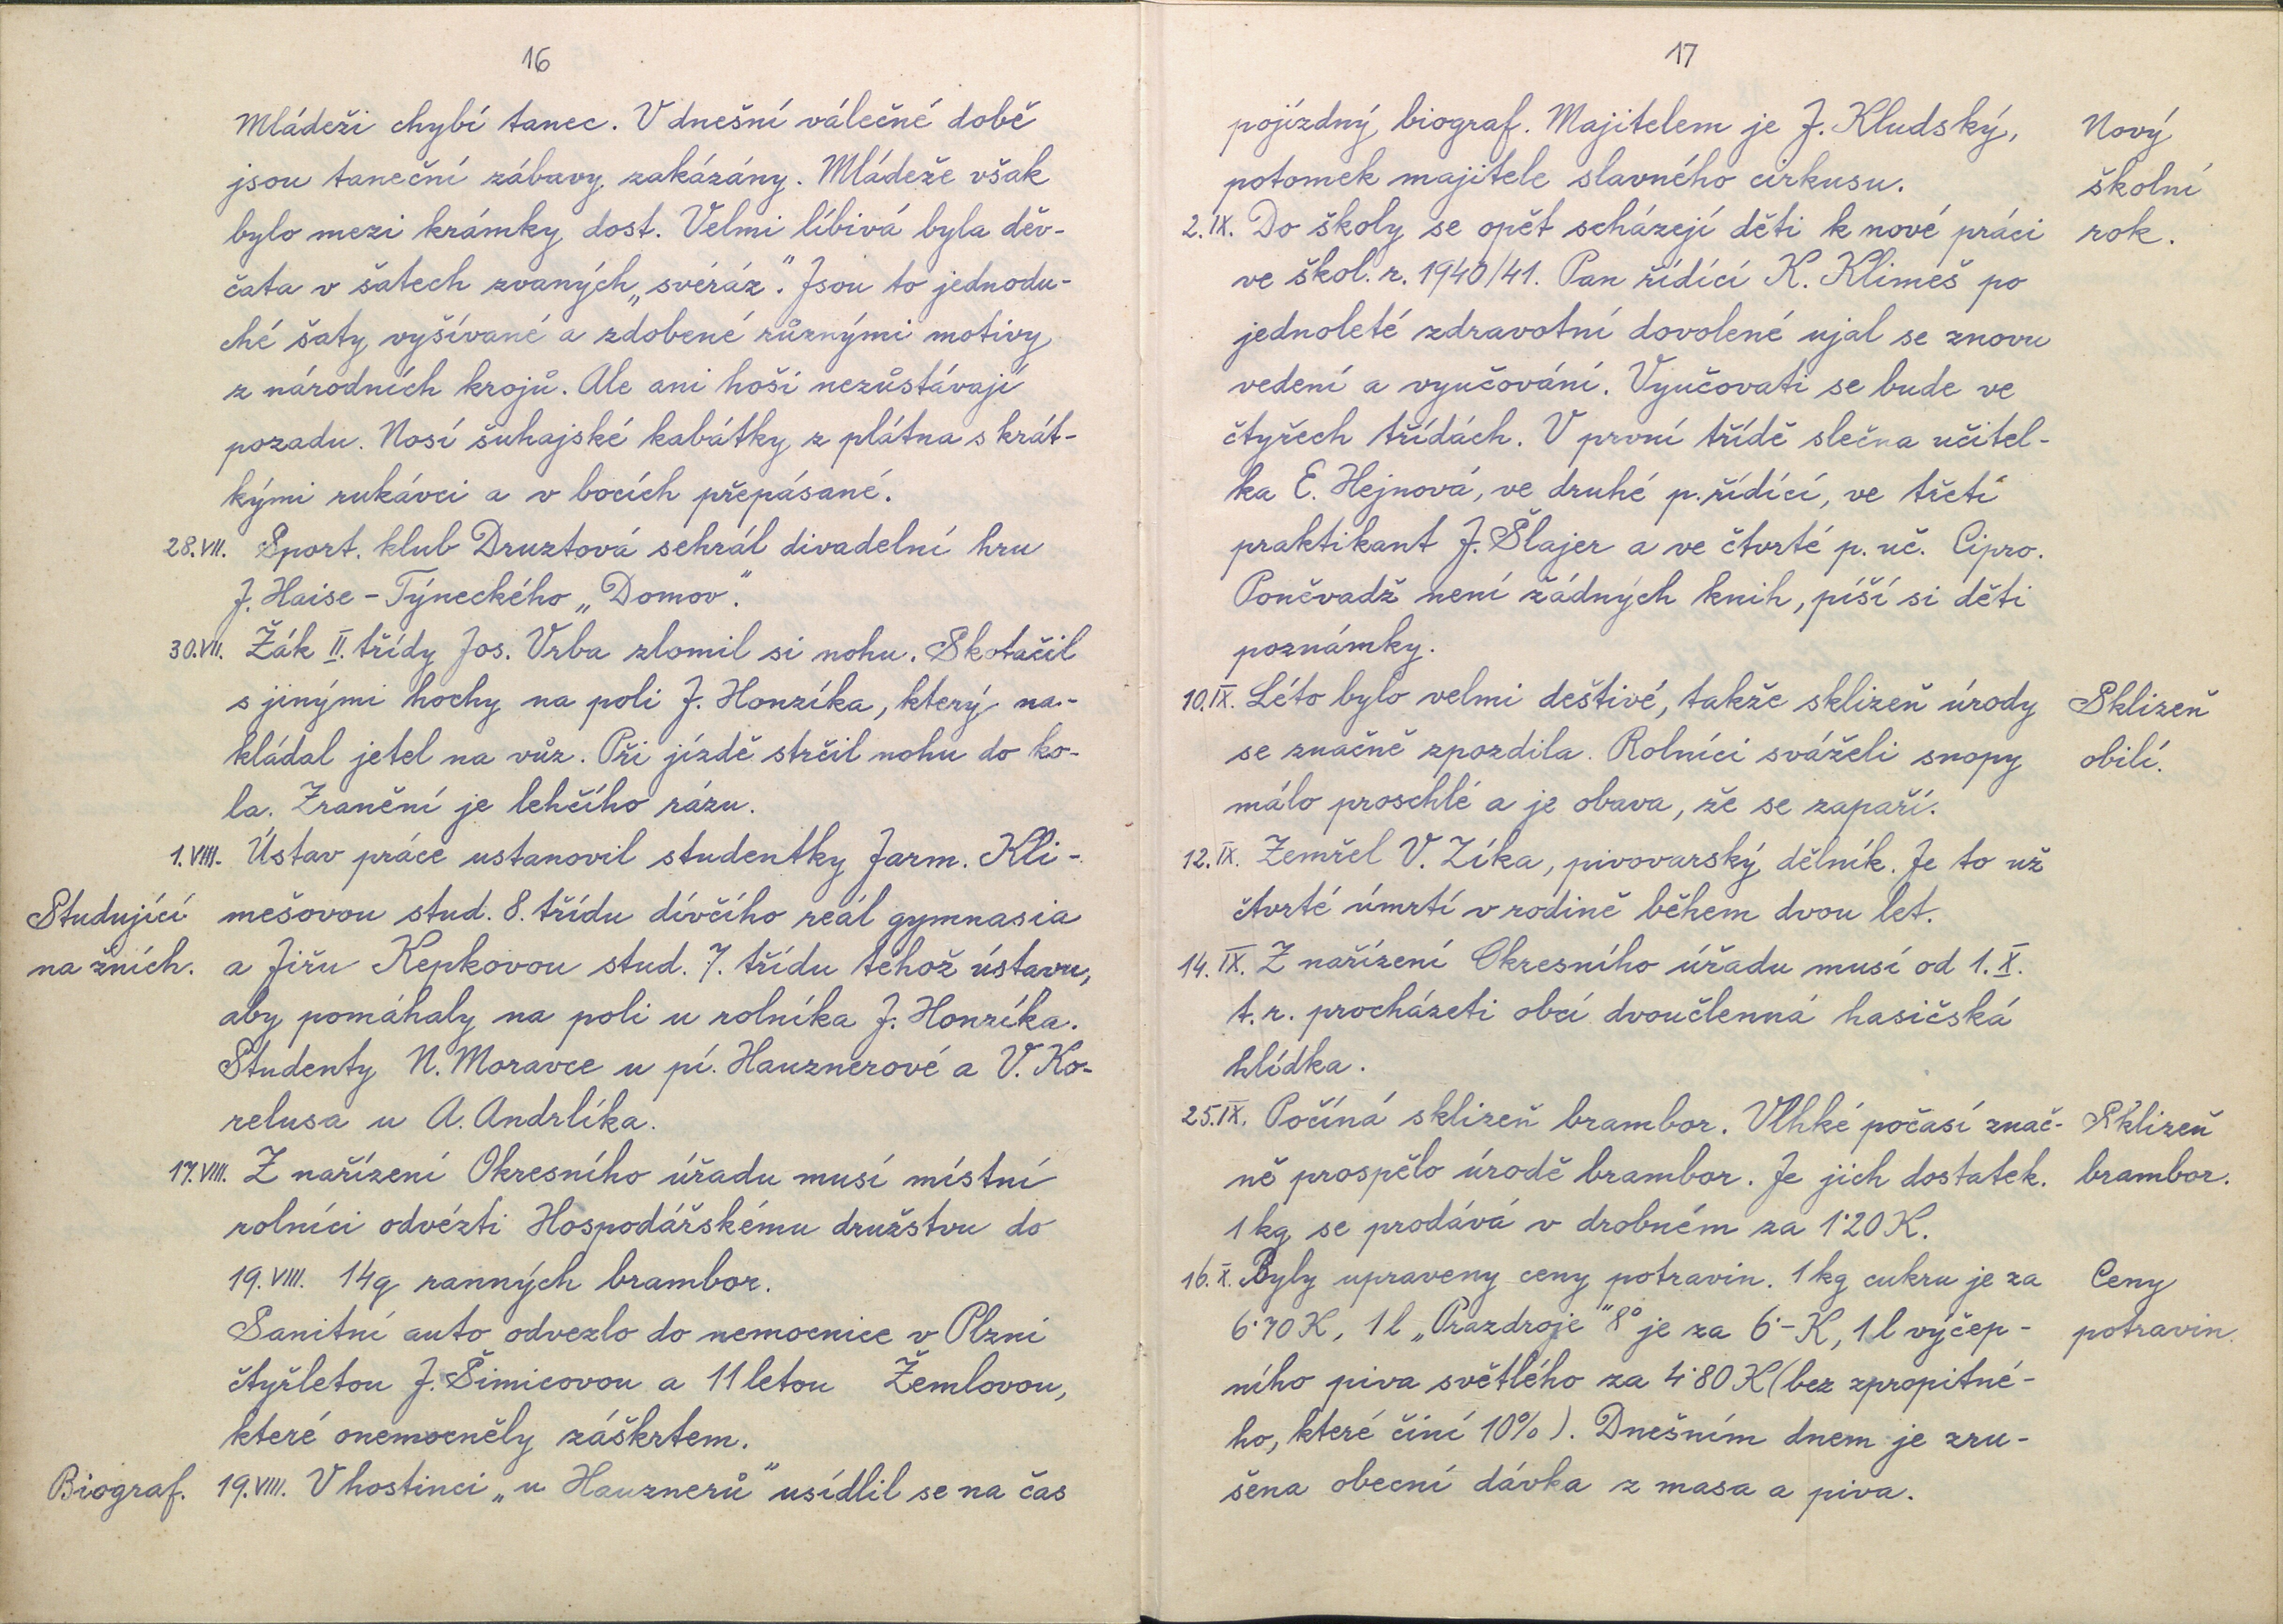 16
Mládeži chybí tanec. V dnešní válečné době
jsou taneční zábavy zakázány. Mládeže však
bylo mezi krámky dost. Velmi líbivá byla děv-
čata v šatech zvaných „svéráz". Jsou to jednodu-
ché šaty vyšívané a zdobené různými motivy
z národních krojů. Ale ani hoši nezůstávají
pozadu. Nosí šuhajské kabátky z plátna s krát-
kými rukávci a v bocích přepásané.
28.VII. Sport. klub Druztová sehrál divadelní hru
J. Haise-Týneckého „Domov".
30.VII. Žák II. třídy Jos. Vrba zlomil si nohu. Skotačil
s jinými hochy na poli J. Honzíka, který na-
kládal jetel na vůz. Při jízdě strčil nohu do ko-
la. Zranění je lehčího rázu.
1.VIII. Ústav práce ustanovil studentky Jarm. Kli-
Studující mešovou stud. 8. třídu dívčího reál gymnasia
na žních. a Jiřu Kepkovou stud. 7. třídu téhož ústavu,
aby pomáhaly na poli u rolníka J. Honzíka.
Studenty N. Moravce u pí. Hauznerové a V. Ko-
relusa u A. Andrlíka.
17.VIII. Z nařízení Okresního úřadu musí místní
rolníci odvézti Hospodářskému družstvu do
19.VIII. 14q ranných brambor.
Sanitní auto odvezlo do nemocnice v Plzni
čtyřletou J. Šimicovou a 11 letou Žemlovou,
které onemocněly záškrtem.
Biograf. 19.VIII. V hostinci „u Hauznerů" usídlil se na čas
17
pojízdný biograf. Majitelem je J. Kludský, Nový
potomek majitele slavného cirkusu. školní
2.IX. Do školy se opět scházejí děti k nové práci rok.
ve škol. r. 1940/41. Pan řídící K. Klimeš po
jednoleté zdravotní dovolené ujal se znovu
vedení a vyučování. Vyučovati se bude ve
čtyřech třídách. V první třídě slečna učitel-
ka E. Hejnová, ve druhé p. řídící, ve třetí
praktikant J. Šlajer a ve čtvrté p. uč. Cipro.
Poněvadž není žádných knih, píší si děti
poznámky.
10.IX. Léto bylo velmi deštivé, takže sklizeň úrody Sklizeň
se značně zpozdila. Rolníci sváželi snopy obilí.
málo proschlé a je obava, že se zapaří.
12.IX. Zemřel V. Zíka, pivovarský dělník. Je to už
čtvrté úmrtí v rodině během dvou let.
14.IX. Z nařízení Okresního úřadu musí od 1.X.
t.r. procházeti obcí dvoučlenná hasičská
hlídka.
25.IX. Počíná sklizeň brambor. Vlhké počasí znač- Sklizeň
ně prospělo úrodě brambor. Je jich dostatek. brambor.
1 kg se prodává v drobném za 1˙20 K.
16.X. Byly upraveny ceny potravin. 1 kg cukru je za Ceny
6˙70 K, 1 l „Prazdroje" 8° je za 6˙- K, 1 l výčep- potravin.
ního piva světlého za 4˙80 K (bez zpropitné-
ho, které činí 10%). Dnešním dnem je zru-
šena obecní dávka z masa a piva.